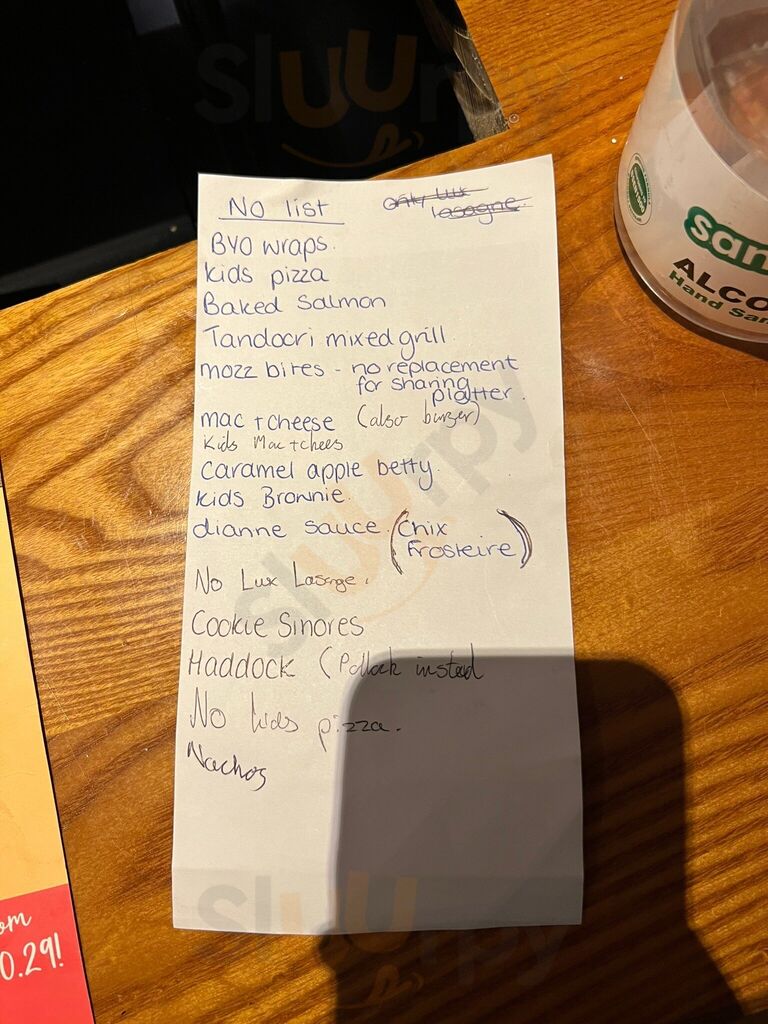 No list
only lux
lasagne.
BYO wraps.
kids pizza
Baked Salmon
Tandoori mixed grill
mozz bites - no replacement
for sharing
platter.
mac + cheese (also burger)
Kids Mac + chees
caramel apple betty.
kids Brownie.
dianne sauce. (Chix
Frosteire)
No Lux Lasange.
Cookie Smores
Haddock (Pollock instead
No kids pizza.
Nachos
san
ALCO
Hand San
om
0.29!
sluurpy
sluurpy
sluurpy